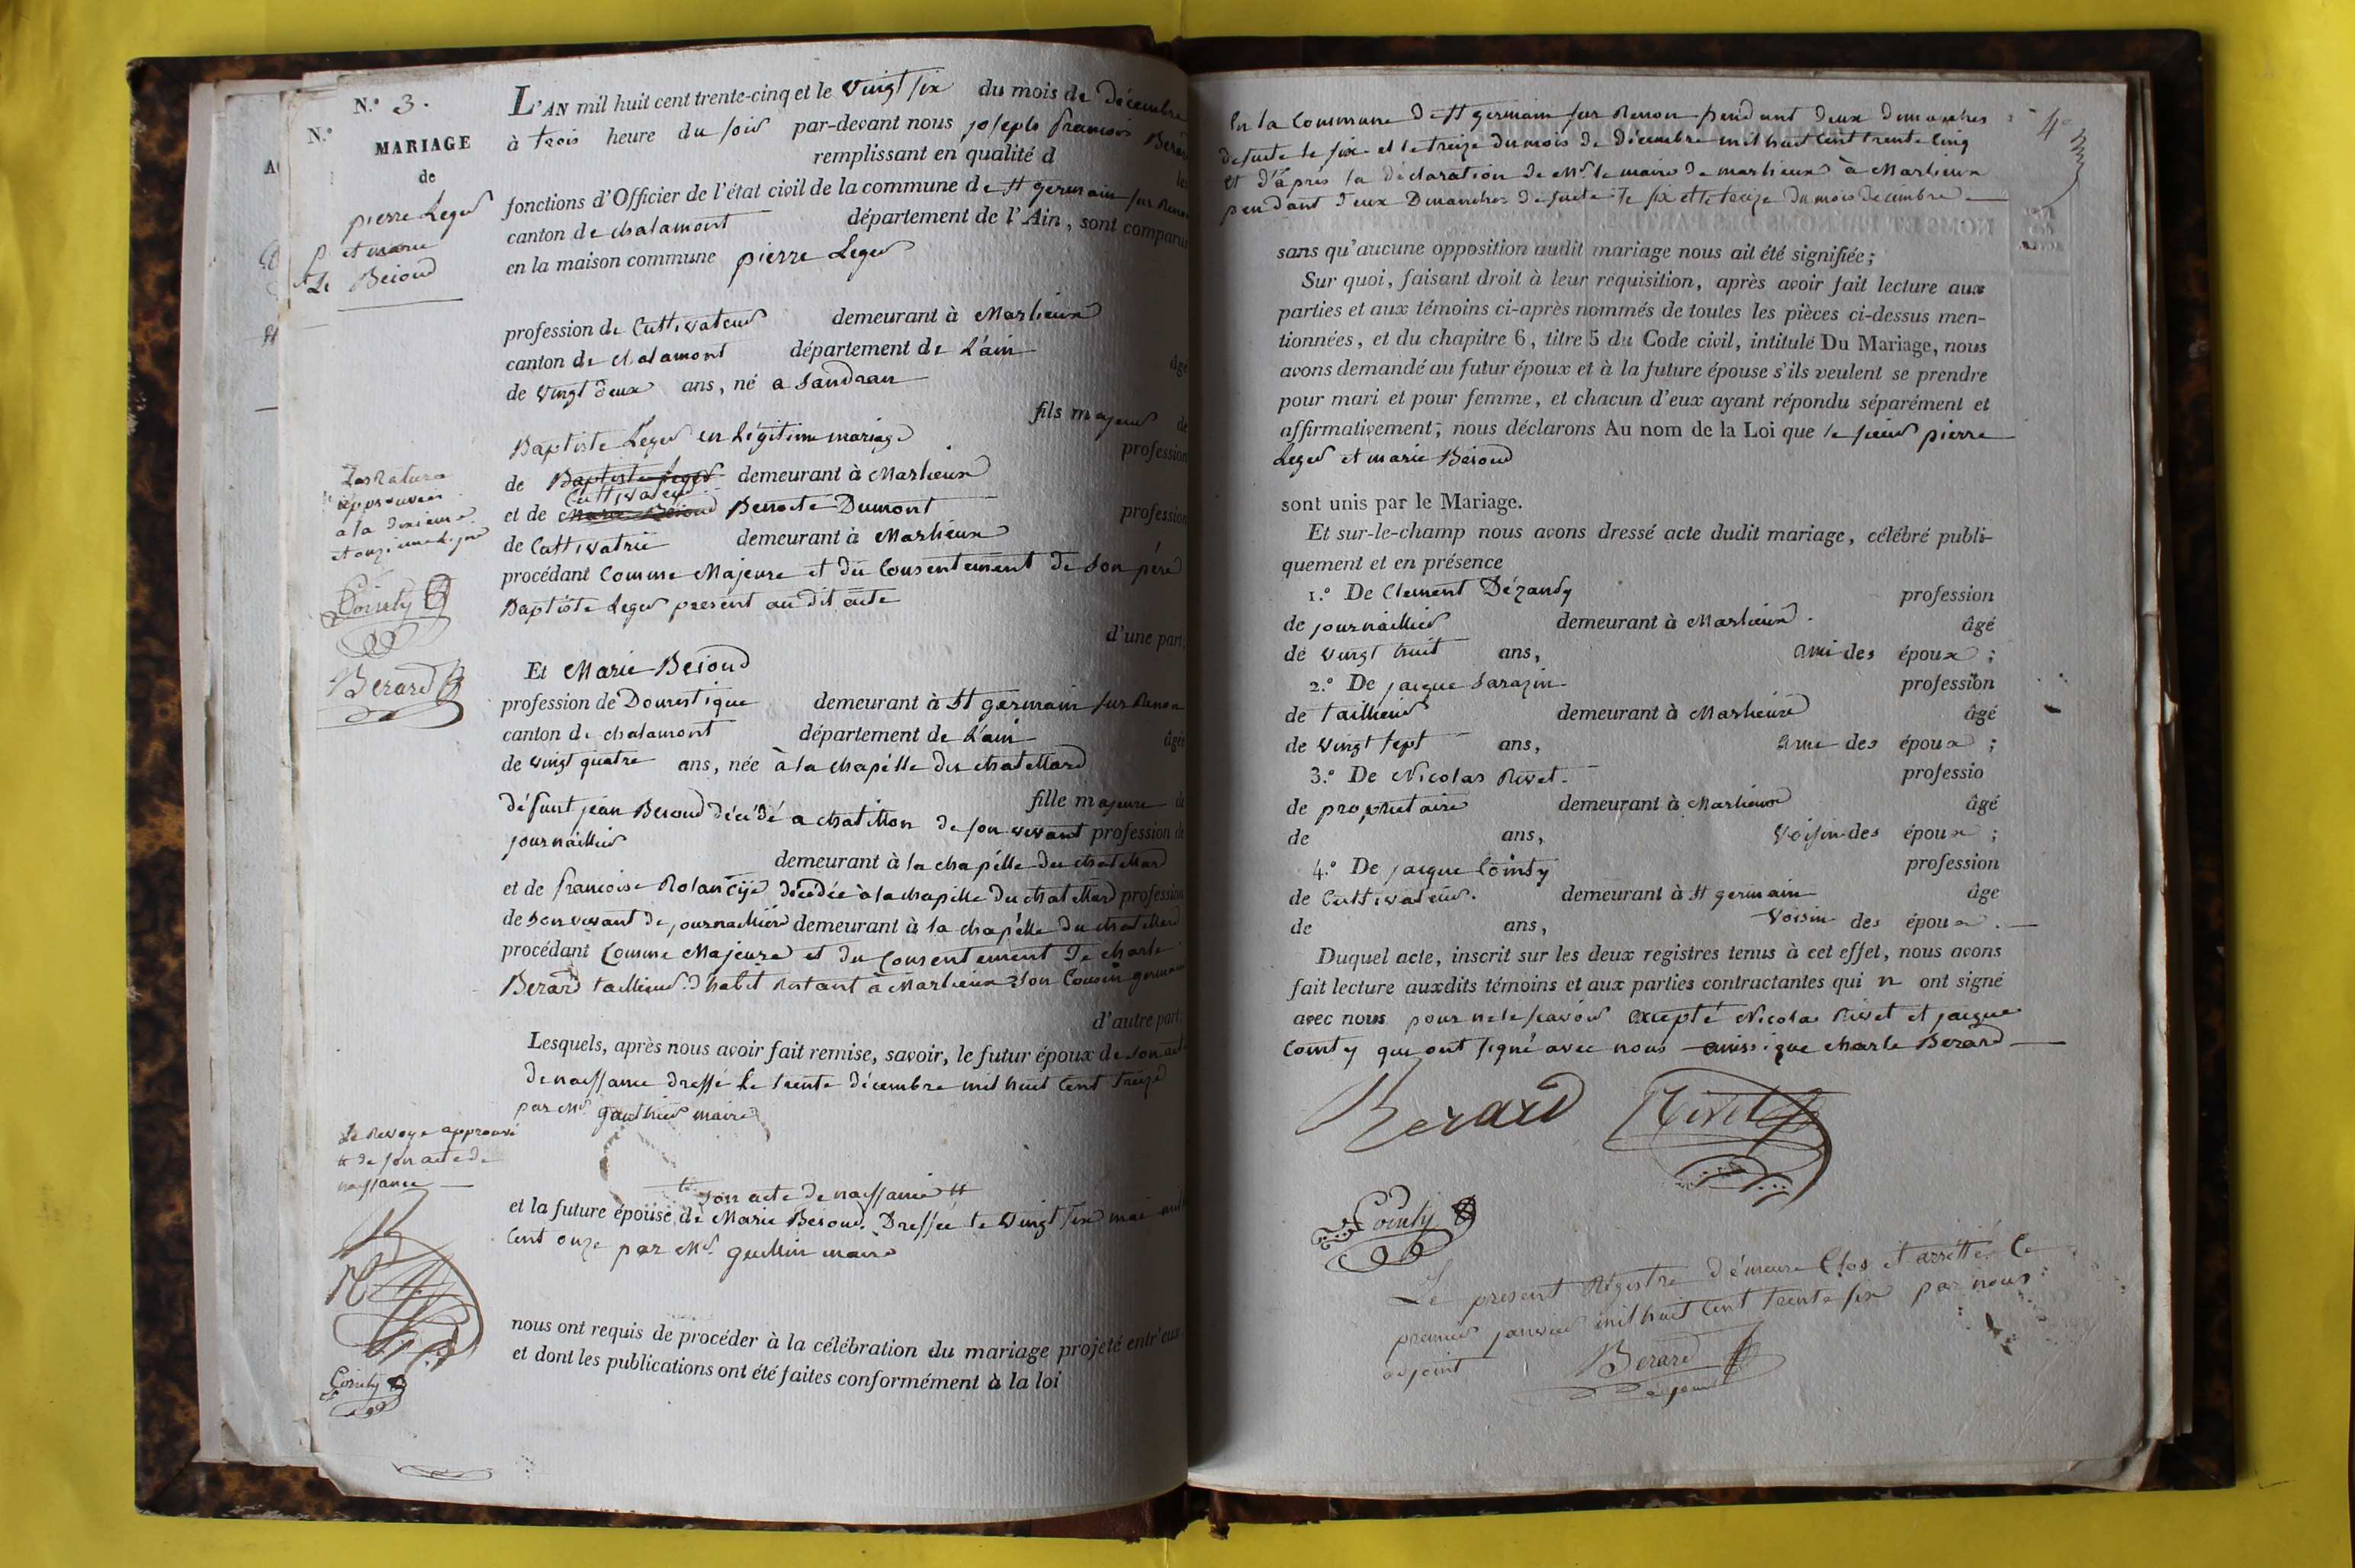 N.º 3.
N.º
MARIAGE
de
pierre Leger
et marie
Beroud
L'AN mil huit cent trente-cinq et le vingt six du mois de décembre
à trois heure du soir par-devant nous joseph francois Berard
remplissant en qualité d les
fonctions d'Officier de l'état civil de la commune de St germain sur Renon
canton de chalamont département de l'Ain, sont comparus
en la maison commune pierre Leger
profession de Cultivateur demeurant à Marlieux
canton de chalamont département de L'ain âgé
de vingt deux ans, né a Sandran
fils majeur de
Baptiste Leger en Légitime mariage profession
de Baptiste Leger demeurant à Marlieux
Cultivateur
et de Marie Beroud Benoite Dumont profession
de Cultivatrie demeurant à Marlieux
procédant Comme Majeure et du Consentement de Son père
Baptiste Leger present au dit acte
d'une part;
Et Marie Beroud
profession de Domestique demeurant à St germain sur Renon
canton de chalamont département de L'ain âgée
de vingt quatre ans, née à la chapélle du chatellard
fille majeure de
défunt jean Beroud décédé a chatillon de son vivant profession de
journaillier
demeurant à la chapélle du chatellard
et de francoise décédée à la chapelle du chatellard profession
de son vivant de journaillier demeurant à la chapélle du chatellard
procédant Comme Majeure et du Consentement De charle
Berard tailleur d'habit restant à Marlieux Son Cousin germain
d'autre part;
Lesquels, après nous avoir fait remise, savoir, le futur époux de son acte
de naissance dressé le trente décembre mil huit Cent treize
par Mr gauthier maire
son acte de naissance #
et la future épouse, de Marie Beroud. Dressée le vingt six mai mil
Cent onze par Mr. guillin maire
nous ont requis de procéder à la célébration du mariage projeté entr'eux
et dont les publications ont été faites conformément à la loi
La Rature
approuvée
a la dixieme
et onzieme ligne
Cointy
Berard
Le Renvoye approuvé
# de son acte de
naissance
Cointy
4
En la Commune de St germain sur Renon pendant deux dimanches
de suite le six et le treize du mois de décembre mil huit Cent trente Cinq
et d'après la déclaration de Mr. le maire de marlieux à Marlieux
pendant deux Dimanches de suite le six et le treize du mois decembre
sans qu'aucune opposition audit mariage nous ait été signifiée;
Sur quoi, faisant droit à leur réquisition, après avoir fait lecture aux
parties et aux témoins ci-après nommés de toutes les pièces ci-dessus men-
tionnées, et du chapitre 6, titre 5 du Code civil, intitulé Du Mariage, nous
avons demandé au futur époux et à la future épouse s'ils veulent se prendre
pour mari et pour femme, et chacun d'eux ayant répondu séparément et
affirmativement, nous déclarons Au nom de la Loi que le sieur pierre
Leger et marie Beroud
sont unis par le Mariage.
Et sur-le-champ nous avons dressé acte dudit mariage, célébré publi-
quement et en présence
1.º De Clement Dézandy profession
de journaillier demeurant à Marlieux. âgé
de vingt huit ans, ami des époux;
2.º De jacque Sarazin profession
de tailleur demeurant à Marlieux âgé
de vingt sept ans, ami des époux;
3.º De Nicolas Rivet. professio
de propriétaire demeurant à Marlieux âgé
de ans, Voisin des époux;
4.º De jacque Cointy profession
de Cultivateur. demeurant à St germain âge
de ans, Voisin des époux.
Duquel acte, inscrit sur les deux registres tenus à cet effet, nous avons
fait lecture auxdits témoins et aux parties contractantes qui n ont signé
avec nous pour ne le scavoir excepté Nicolas Rivet et jacque
Cointy qui ont signé avec nous ainsi que charle Berard
Berard Rivet
Cointy
Le present Régistre demeure Clos et arrêtté le
premier janvier mil huit Cent trente six par nous
adjoint Berard
adjoint